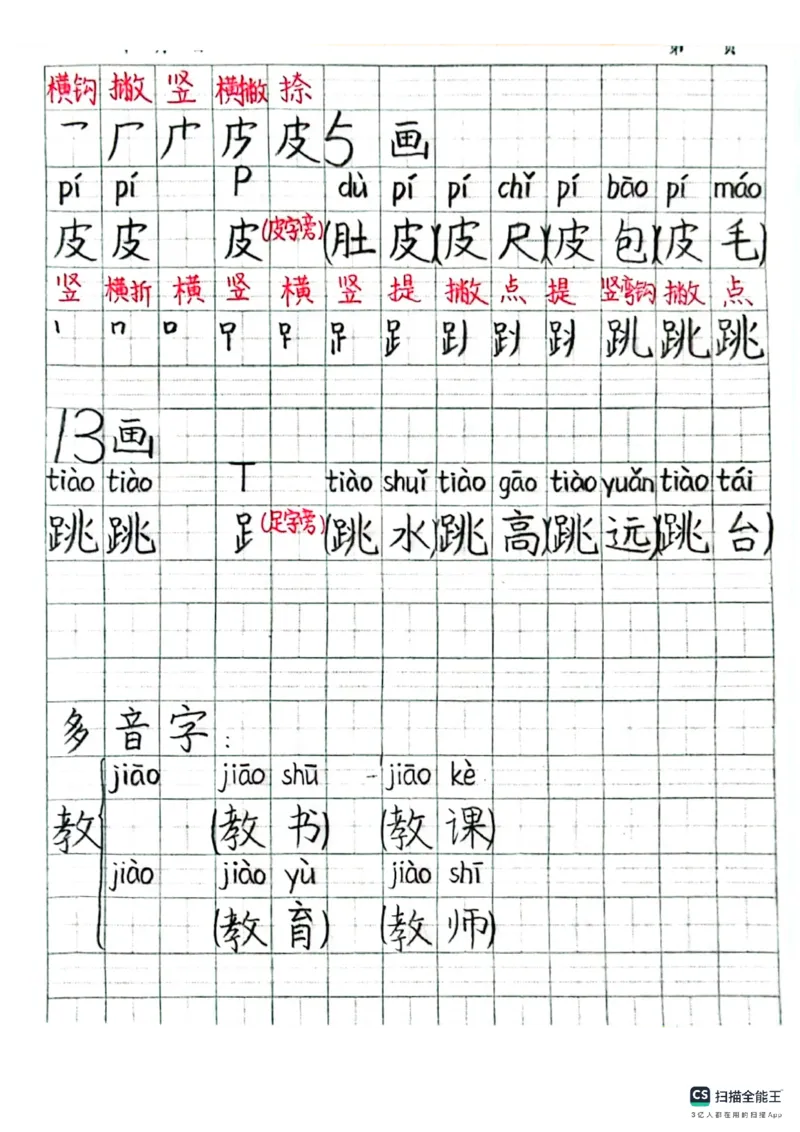 第 页
横钩 撇 竖 横撇 捺
皮 5 画
pí pí P dù pí pí chǐ pí bāo pí máo
皮 皮 皮(皮字旁) (肚 皮)(皮 尺)(皮 包)(皮 毛)
竖 横折 横 竖 横 竖 提 撇 点 提 竖弯钩 撇 点
跳
13画
tiào tiào T tiào shuǐ tiào gāo tiào yuǎn tiào tái
跳 跳 𧾷(足字旁) (跳 水)(跳 高)(跳 远)(跳 台)
多 音 字:
jiāo jiāo shū jiāo kè
教 (教 书) (教 课)
jiào jiào yù jiào shī
(教 育) (教 师)
CS 扫描全能王
3亿人都在用的扫描App